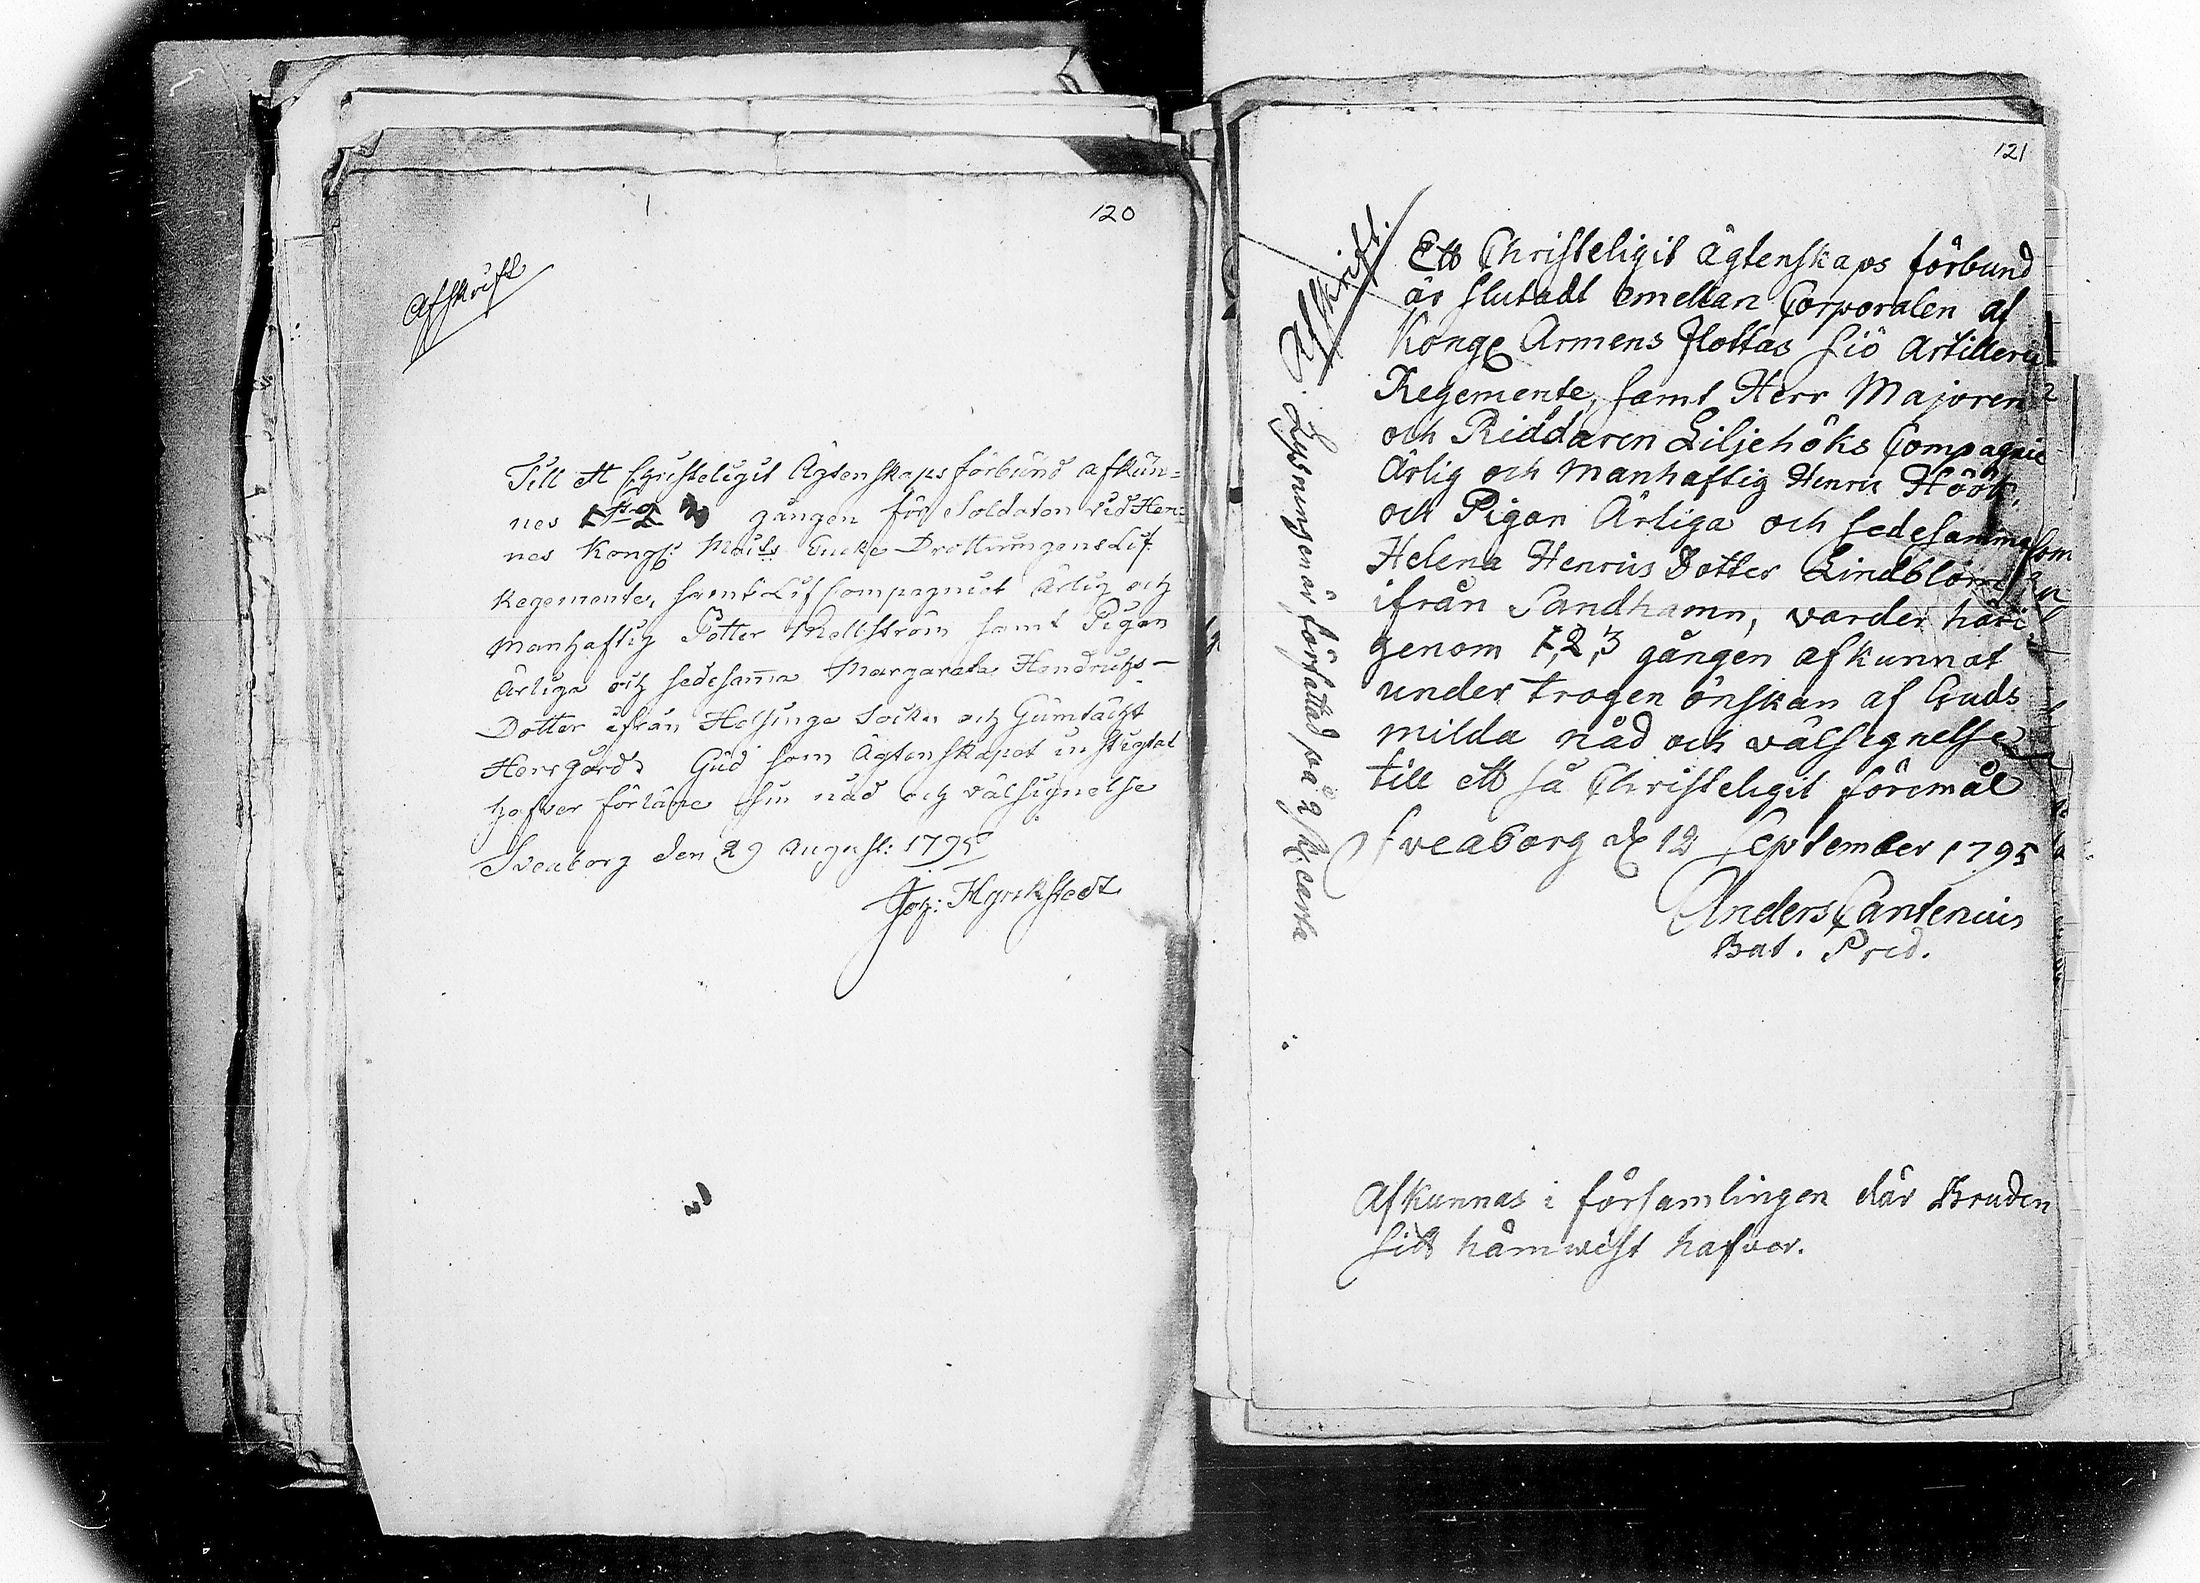 120
Afskrift
Till ett Christeligit Ägtenskaps förbund afkun-
nes 1 2 3 gången för Soldaten vid Hen-
nes Kongl: Maij:ts Enke Drottningens Lif
Regemente, samt Lif Compagniet Ärlig och
Manhaftig Petter Mellström samt Pigan
Ärliga och sedesamma Margareta Hendrichs-
Dotter ifrån Helsinge Sockn och Gumtächt
Herrgård. Gud som Ägtenskapet instigtat
hafver förläne sin nåd och välsignelse
Sveaborg den 29 August: 1795
Joh:
121
Afskrift.
Ett Christeligit ägtenskaps förbund
är slutadt emellan Corporalen af
Kongl Armens flottas siö Artilleri
Regemente, samt Herr Majoren
och Riddaren Liljehöks Compagnie
Ärlig och Manhaftig Henric Höök,
och Pigan Ärliga och sedesamma
Helena Henrics Dotter Lindblom, som
ifrån Sandhamn, varder häri
genom 1,2,3 gången afkunnat
under trogen önskan af Guds
milda nåd och välsignelse
till ett så Christeligit föremål
Sveaborg d 12 September 1795
Anders Cantenius
Bat. Pred.
Lysningen är författad på 2 sk: carta
Afkunnas i församlingen där Bruden
sitt hämwist hafver.